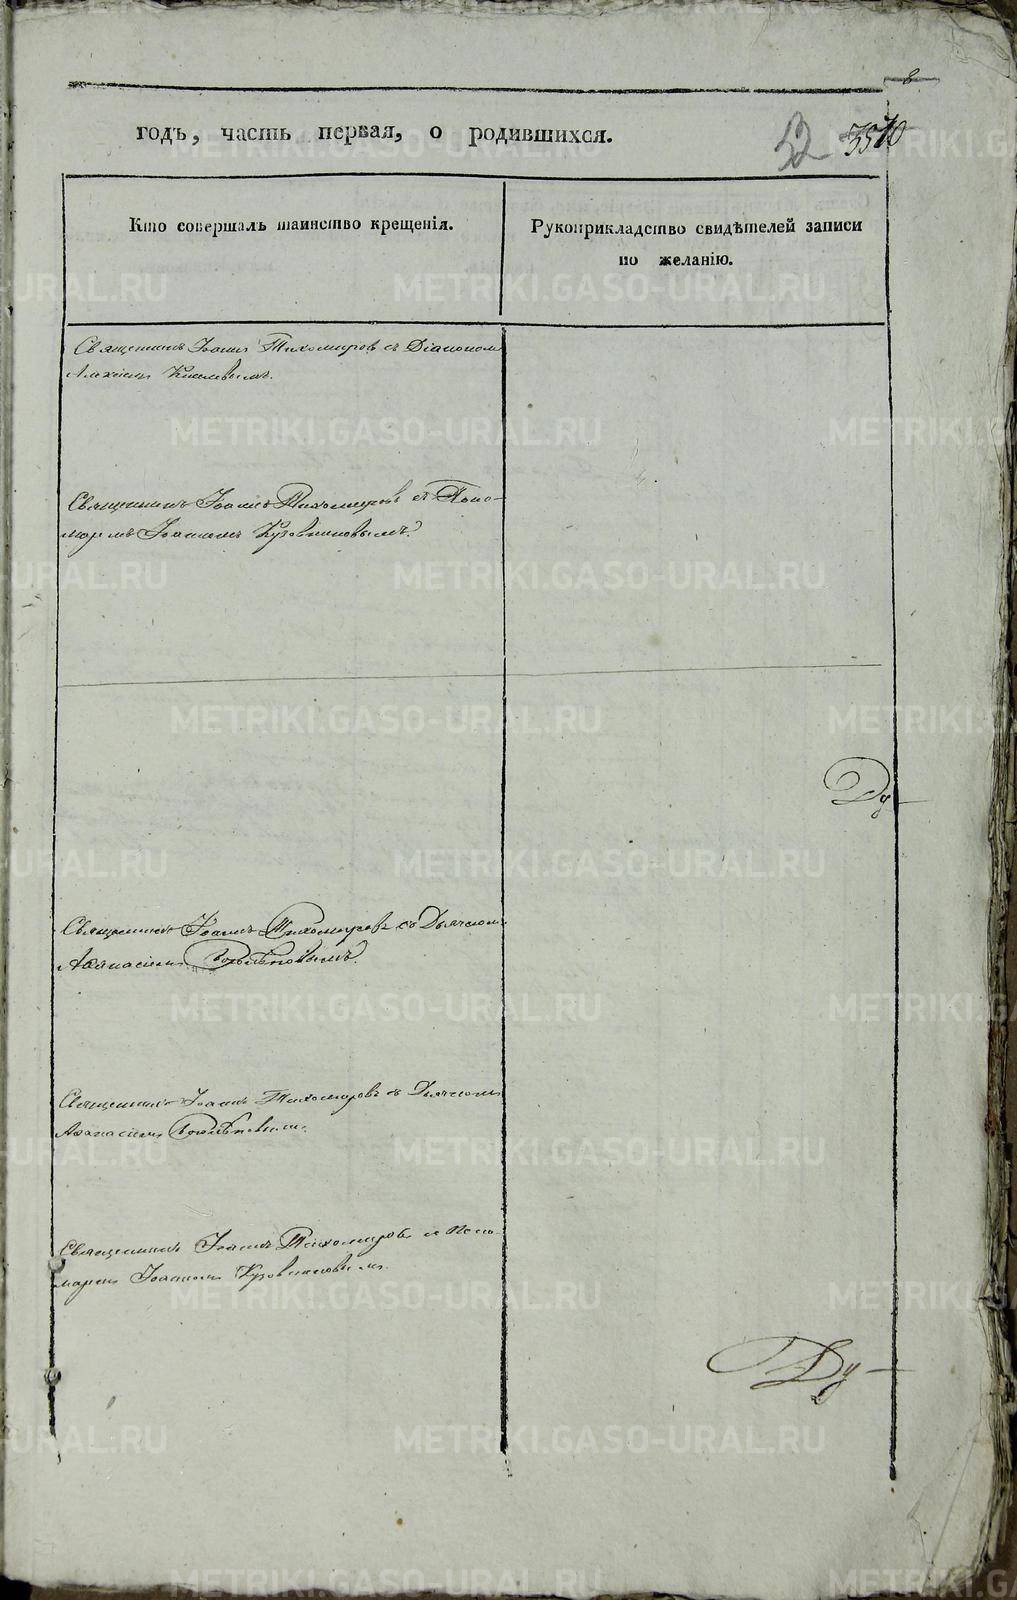 8
годъ, часть первая, о родившихся.
52 3570
Кто совершалъ таинство крещенія.
Рукоприкладство свидѣтелей записи
по желанію.
Священникъ Іоаннъ Тихомировъ съ Діакономъ
Алексіемъ
Священникъ Іоаннъ Тихомировъ съ Поно-
маремъ Іоанномъ Кузовниковымъ.
Ду
Священникъ Іоаннъ Тихомировъ съ Дьячкомъ
Аѳанасіемъ
Священникъ Іоаннъ Тихомировъ съ Дьячкомъ
Аѳанасіемъ
Священникъ Іоаннъ Тихомировъ съ Поно-
маремъ Іоанномъ Кузовниковымъ.
Ду
METRIKI.GASO-URAL.RU